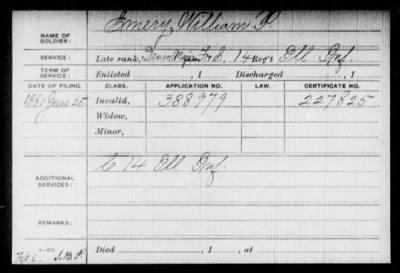 NAME OF SOLDIER: Emery, William P.
SERVICE: Late rank, Drum Major F&S, 14 Reg't Ill. Inf.
TERM OF SERVICE: Enlisted , 1 Discharged , 1
DATE OF FILING. CLASS. APPLICATION NO. LAW. CERTIFICATE NO.
1880 June 25 Invalid, 388979 227825
Widow,
Minor,
ADDITIONAL SERVICES: C 14 Ill. Inf.
REMARKS:
Died , 1 , at